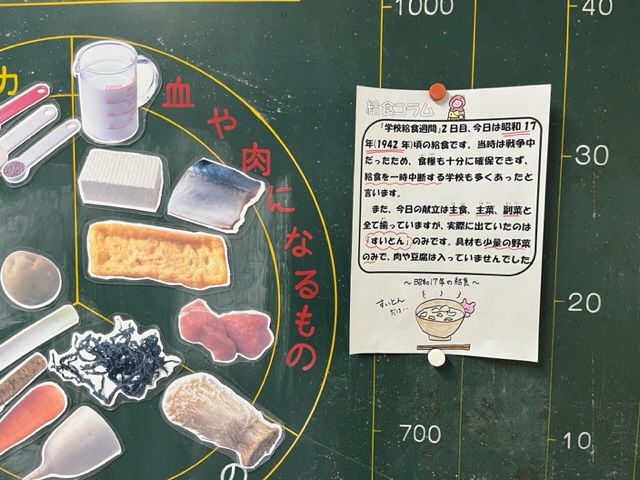 力
血や肉になるもの
の
給食コラム
「学校給食週間」2日目、今日は昭和17
年(1942年)頃の給食です。当時は戦争中
だったため、食糧も十分に確保できず、
給食を一時中断する学校も多くあったと
言います。
また、今日の献立は主食、主菜、副菜と
全て揃っていますが、実際に出ていたのは
「すいとん」のみです。具材も少量の野菜
のみで、肉や豆腐は入っていませんでした
～昭和17年の給食～
すいとん
だけ…
1000
40
30
20
700
10